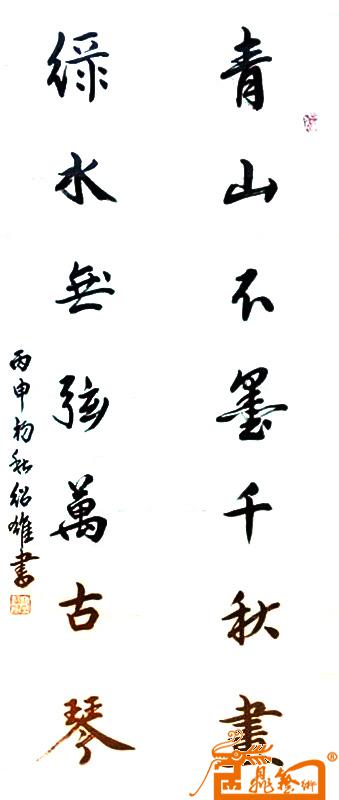 青山不墨千秋畫
綠水無弦萬古琴
丙申初秋紹雄書
鼎藝術®